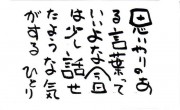 思いやりのあ
る言葉って
いいよな今回
は少し話せ
たような気
がする ひとり